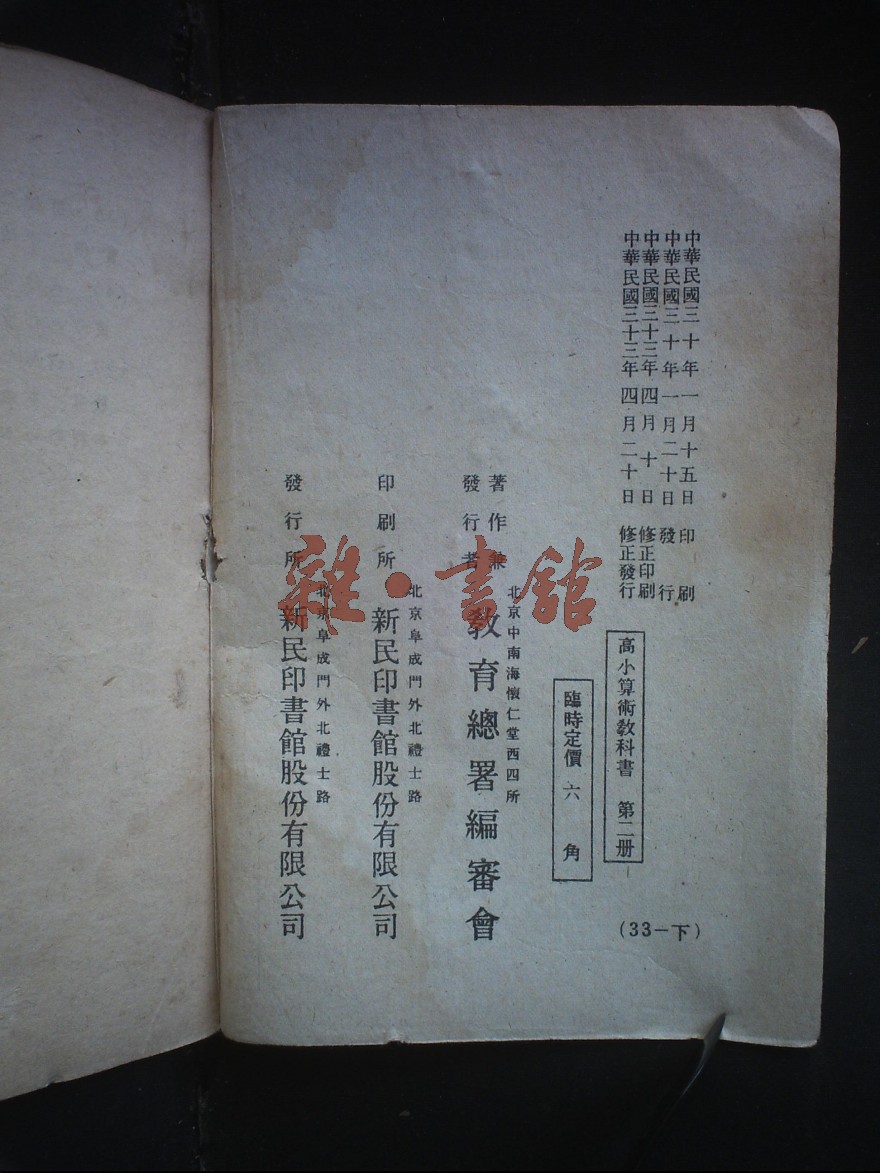 中華民國三十年一月十五日 印刷
中華民國三十年一月二十日 發行
中華民國三十三年四月十日 修正印刷
中華民國三十三年四月二十日 修正發行
高小算術教科書 第二册
(33—下)
臨時定價 六角
北京中南海懷仁堂西四所
著作兼
發行者
教育總署編審會
北京阜成門外北禮士路
印刷所 新民印書館股份有限公司
北京阜成門外北禮士路
發行所 新民印書館股份有限公司
雜·書館